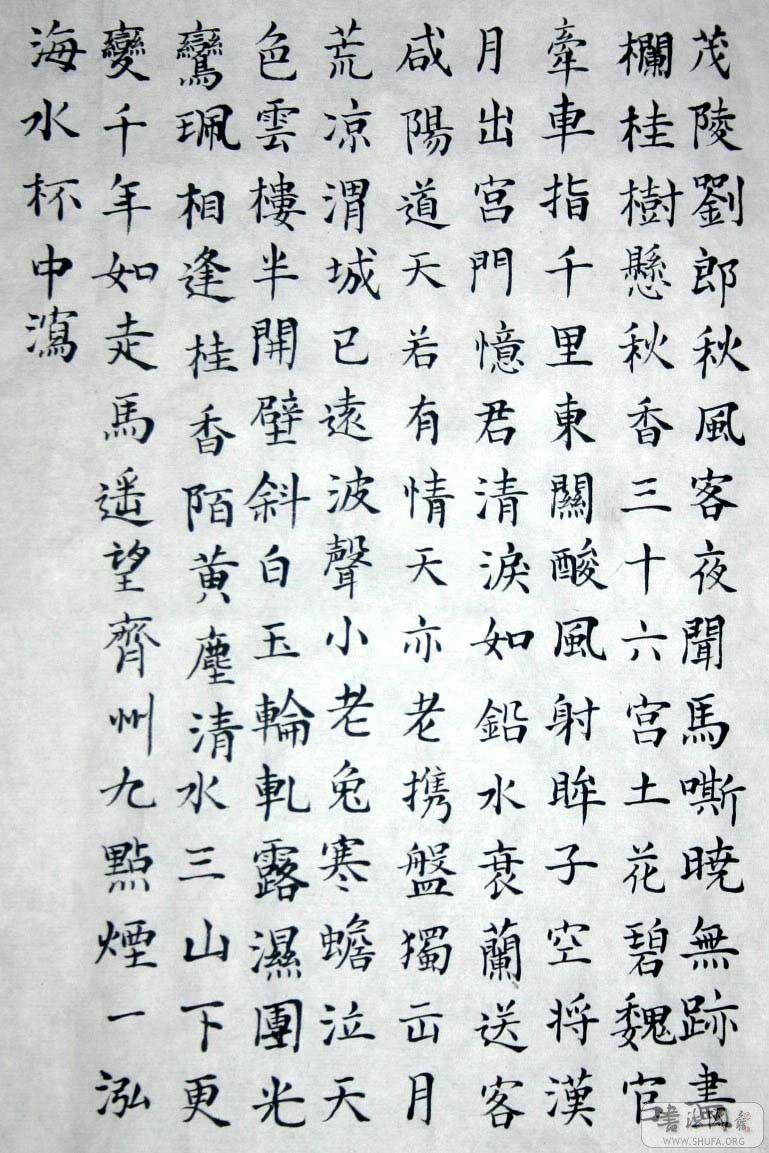 茂陵劉郎秋風客夜聞馬嘶曉無跡畫
欄桂樹懸秋香三十六宮土花碧魏官
牽車指千里東關酸風射眸子空将漢
月出宮門憶君清淚如鉛水衰蘭送客
咸陽道天若有情天亦老携盤獨出月
荒凉渭城已遠波聲小老兔寒蟾泣天
色雲樓半開壁斜白玉輪軋露濕團光
鸞珮相逢桂香陌黄塵清水三山下更
變千年如走馬遥望齊州九點煙一泓
海水杯中瀉
WWW.SHUFA.ORG